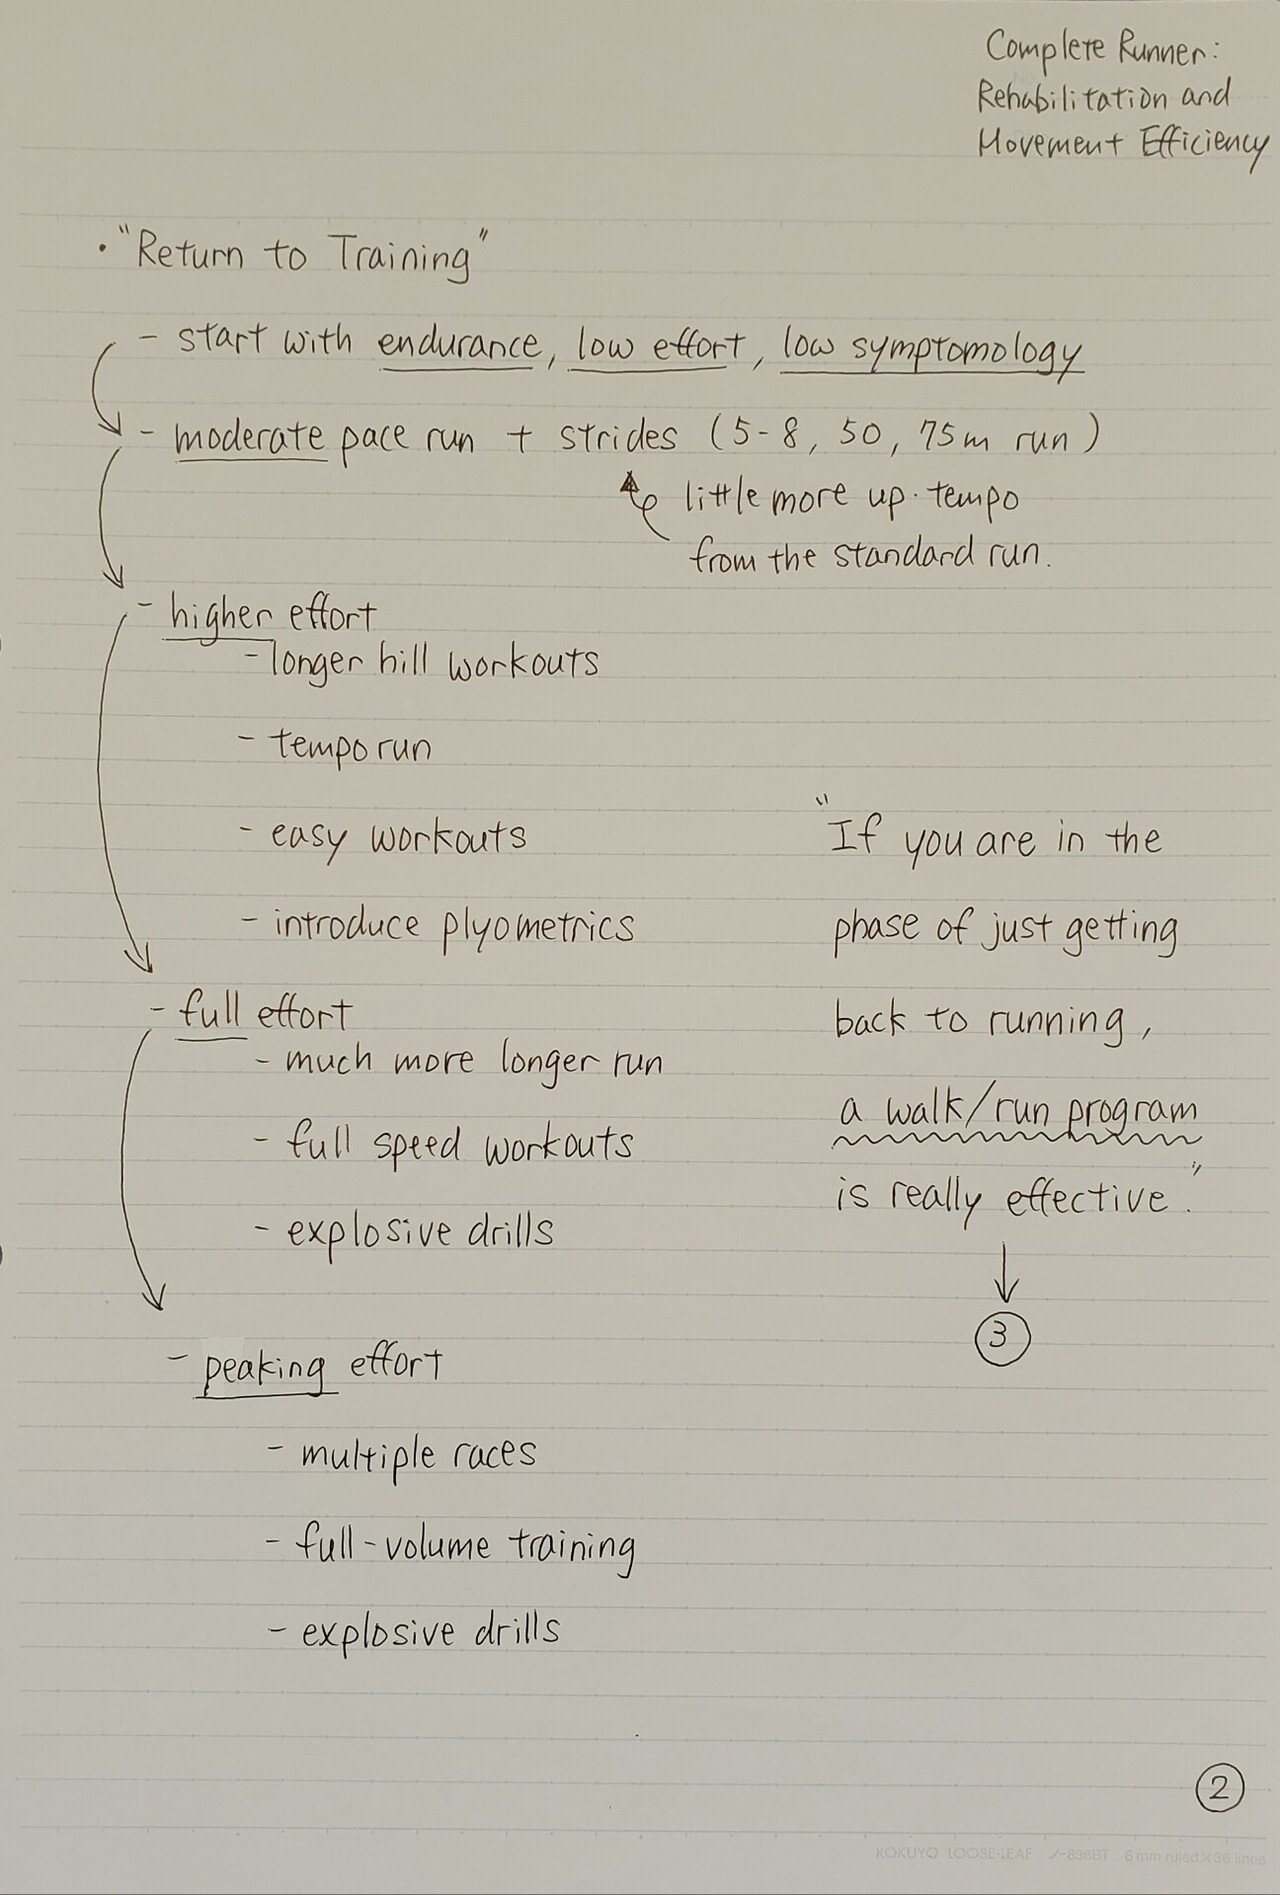 Complete Runner:
Rehabilitation and
Movement Efficiency
• "Return to Training"
- start with endurance, low effort, low symptomology
- moderate pace run + strides (5-8, 50, 75m run)
little more up-tempo
from the standard run.
- higher effort
- longer hill workouts
- tempo run
- easy workouts
- introduce plyometrics
- full effort
- much more longer run
- full speed workouts
- explosive drills
- peaking effort
- multiple races
- full-volume training
- explosive drills
"If you are in the
phase of just getting
back to running,
a walk/run program
is really effective."
3
2
KOKUYO LOOSE-LEAF ノ-836BT 6 mm ruled×36 lines